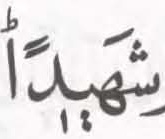 شَهِيدًاؕ